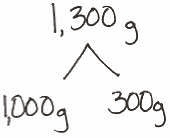 1,300 g
1,000g
300g